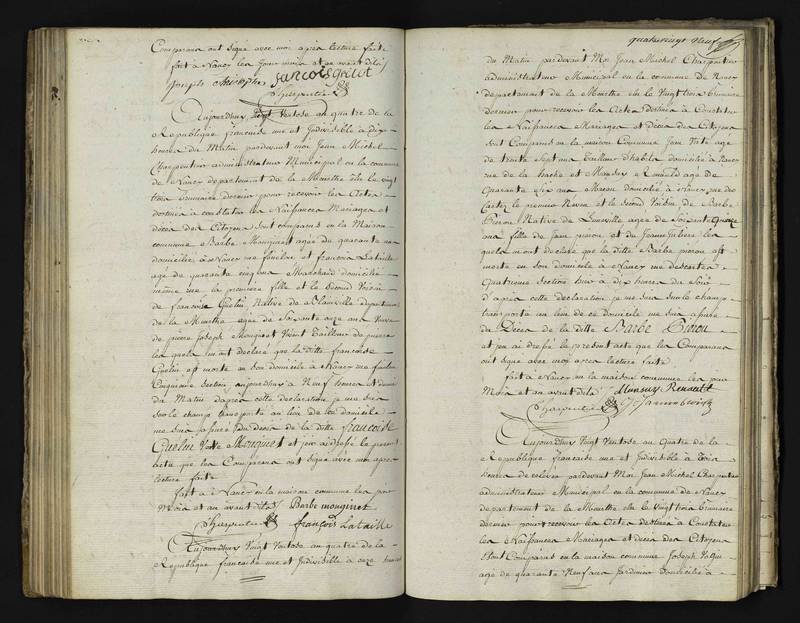 Comparans ont signé avec moi après lecture faite
fait à Nancy les jour mois et an avant dits
Joseph françois gricot
Charpentier
Aujourdhuy Vingt Ventose an quatre de la
République française une et Indivisible à dix
heures du Matin pardevant moi Jean Michel
Charpentier administrateur Municipal en la commune
de Nancy departement de la Meurthe élu le vingt
trois Brumaire dernier pour recevoir les Actes
destinés à constater les Naissances Mariages et
décès des Citoyens sont comparus en la Maison
commune Barbe Mounginet agée de quarante ans
domiciliée à Nancy rue et françois Lataille
agé de quarante cinq ans Marchand domicilié
même rue la premiere fille et le Second Voisin
de françoise Quelin Native de Blainville departement
de la Meurthe agée de Soixante onze ans Veuve
de Joseph Mougin Vivant Tailleur de pierre
les quels m'ont déclaré que la ditte françoise
Quelin est morte en son domicile à Nancy rue
Cinquieme Section aujourdhuy à Neuf heures et demie
du Matin dapres cette déclaration je me suis
sur le champ transporté au lieu de ce domicile
me suis assuré du décès de la ditte françoise
Quelin Veuve et j'en ai dressé le present
acte que les Comparans ont signé avec moi apres
lecture faite
fait à Nancy en la maison commune les jour
Mois et an avant dits Barbe mouginet
Charpentier françois Lataille
Aujourdhuy Vingt Ventose an quatre de la
République francaise une et Indivisible à onze heures
quatrevingt neuf
du Matin pardevant Moi Jean Michel Charpentier
administrateur Municipal en la commune de Nancy
departement de la Meurthe élu le Vingt trois Brumaire
dernier pour recevoir les Actes destinés à Constater
les Naissances Mariages et décès des Citoyens
sont Comparus en la maison Commune Jean agé
de trente Sept ans Tailleur d'habits domicilié à Nancy
rue de la hache et Mansuy Renauld agé de
Quarante Six ans Maçon domicilié à Nancy rue des
le premier Neveu et le Second Voisin de Barbe
Pieron Native de Luneville agée de Soixante Quinze
ans fille de Jean pieron et de Jeanne les
quels m'ont déclaré que la ditte Barbe pieron est
morte en son domicile à Nancy rue
Quatrieme Section hier à dix heures du Soir
d'apres cette déclaration je me suis sur le champ
transporté au lieu de ce domicile me suis assuré
du Décès de la ditte Barbe Pieron
et j'en ai dressé le present acte que les Comparans
ont signé avec moi apres lecture faite
fait à Nancy en la maison commune les jour
Mois et an avant dits Mansuy Renault
Charpentier
Aujourdhuy Vingt Ventose an Quatre de la
République francaise une et Indivisible à trois
heures de relevée pardevant Moi Jean Michel Charpentier
administrateur Municipal en la commune de Nancy
departement de la Meurthe élu le Vingt trois Brumaire
dernier pour recevoir les Actes destinés à Constater
les Naissances Mariages et décès des Citoyens
Sont Comparus en la maison commune Joseph
agé de quarante Neuf ans Jardinier domicilié à